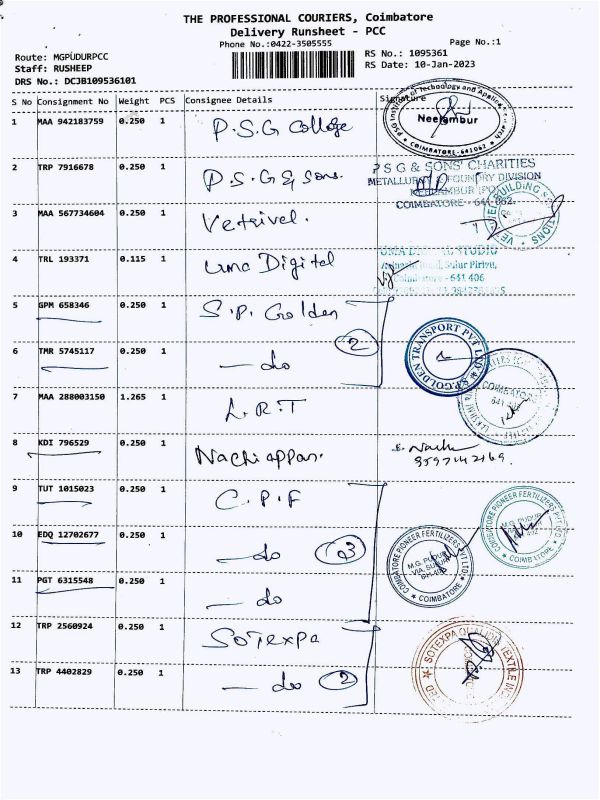 THE PROFESSIONAL COURIERS, Coimbatore
Delivery Runsheet - PCC
Phone No.:0422-3505555
Page No.:1
Route: MGPUDURPCC
Staff: RUSHEEP
DRS No.: DCJB109536101
RS No.: 1095361
RS Date: 10-Jan-2023
S No Consignment No Weight PCS Consignee Details Signature
1 MAA 942183759 0.250 1 P.S.G College
Neelambur
COIMBATORE-641062
2 TRP 7916678 0.250 1 P.S.G & Sons.
P S G & SONS' CHARITIES
METALLURGY & FOUNDRY DIVISION
COIMBATORE - 641 062.
3 MAA 567734604 0.250 1 Vetrivel.
4 TRL 193371 0.115 1 Uma Digital
UMA DIGITAL STUDIO
Sulur Pirivu,
Coimbatore - 641 406
5 GPM 658346 0.250 1 S.P. Golden
6 TMR 5745117 0.250 1 — do 2
S.P. GOLDEN TRANSPORT PVT LTD
7 MAA 288003150 1.265 1 L.R.T
COIMBATORE
8 KDI 796529 0.250 1 Nachiappan.
9 TUT 1015023 0.250 1 C.P.F
COIMBATORE PIONEER FERTILIZERS PVT LTD
M.G. PUDUR
COIMBATORE
10 EDQ 12702677 0.250 1 — do 3
COIMBATORE PIONEER FERTILIZERS PVT LTD
M.G. PUDUR
VIA. SULUR
COIMBATORE
11 PGT 6315548 0.250 1 — do
12 TRP 2560924 0.250 1 SOTEXPA
13 TRP 4402829 0.250 1 — do 2
SOTEXPA QUALIDIS TEXTILE